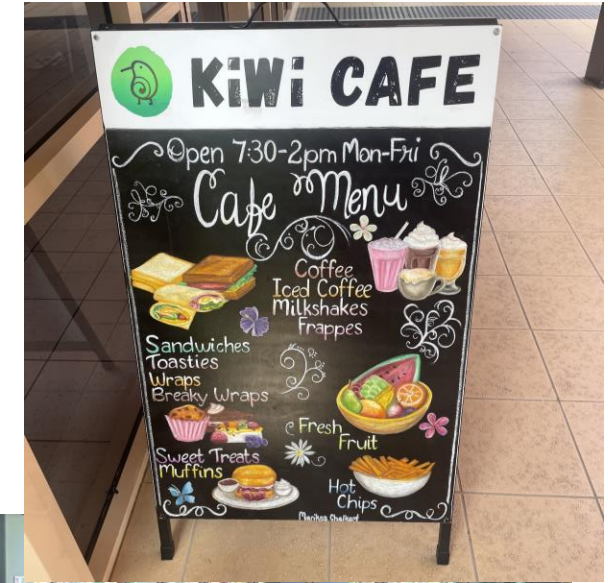 KiWi CAFE
Open 7:30-2pm Mon-Fri
Cafe Menu
Coffee
Iced Coffee
Milkshakes
Frappes
Sandwiches
Toasties
Wraps
Breaky Wraps
Fresh
Fruit
Sweet Treats
Muffins
Hot
Chips